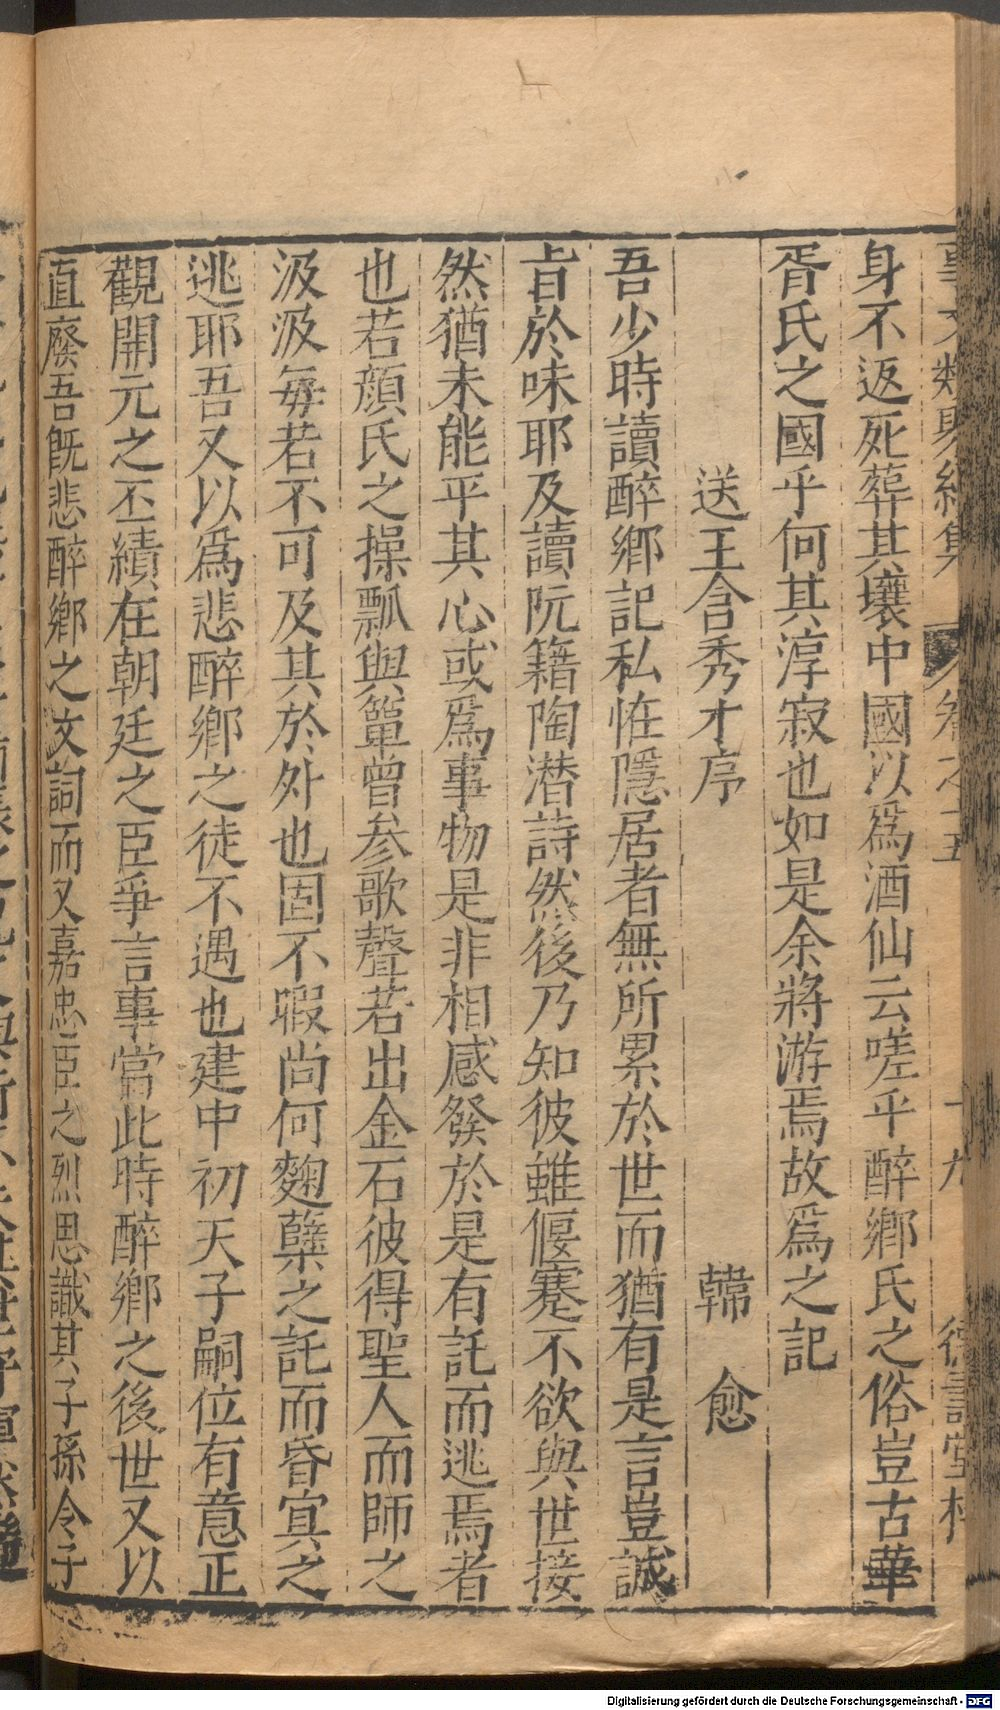 事文類聚續集 卷之十五 十九 德壽堂梓
身不返死葬其壤中國以爲酒仙云嗟乎醉鄉氏之俗豈古華
胥氏之國乎何其淳寂也如是余將游焉故爲之記
送王含秀才序 韓愈
吾少時讀醉鄉記私恠隱居者無所累於世而猶有是言豈誠
旨於味耶及讀阮籍陶潜詩然後乃知彼雖偃蹇不欲與世接
然猶未能平其心或爲事物是非相感發於是有託而逃焉者
也若顔氏之操瓢與簞曾参歌聲若出金石彼得聖人而師之
汲汲每若不可及其於外也固不暇尚何麴糵之託而昏冥之
逃耶吾又以爲悲醉鄉之徒不遇也建中初天子嗣位有意正
觀開元之丕績在朝廷之臣爭言事當此時醉鄉之後世又以
直廢吾旣悲醉鄉之文詞而又嘉忠臣之烈思識其子孫今子
Digitalisierung gefördert durch die Deutsche Forschungsgemeinschaft - DFG